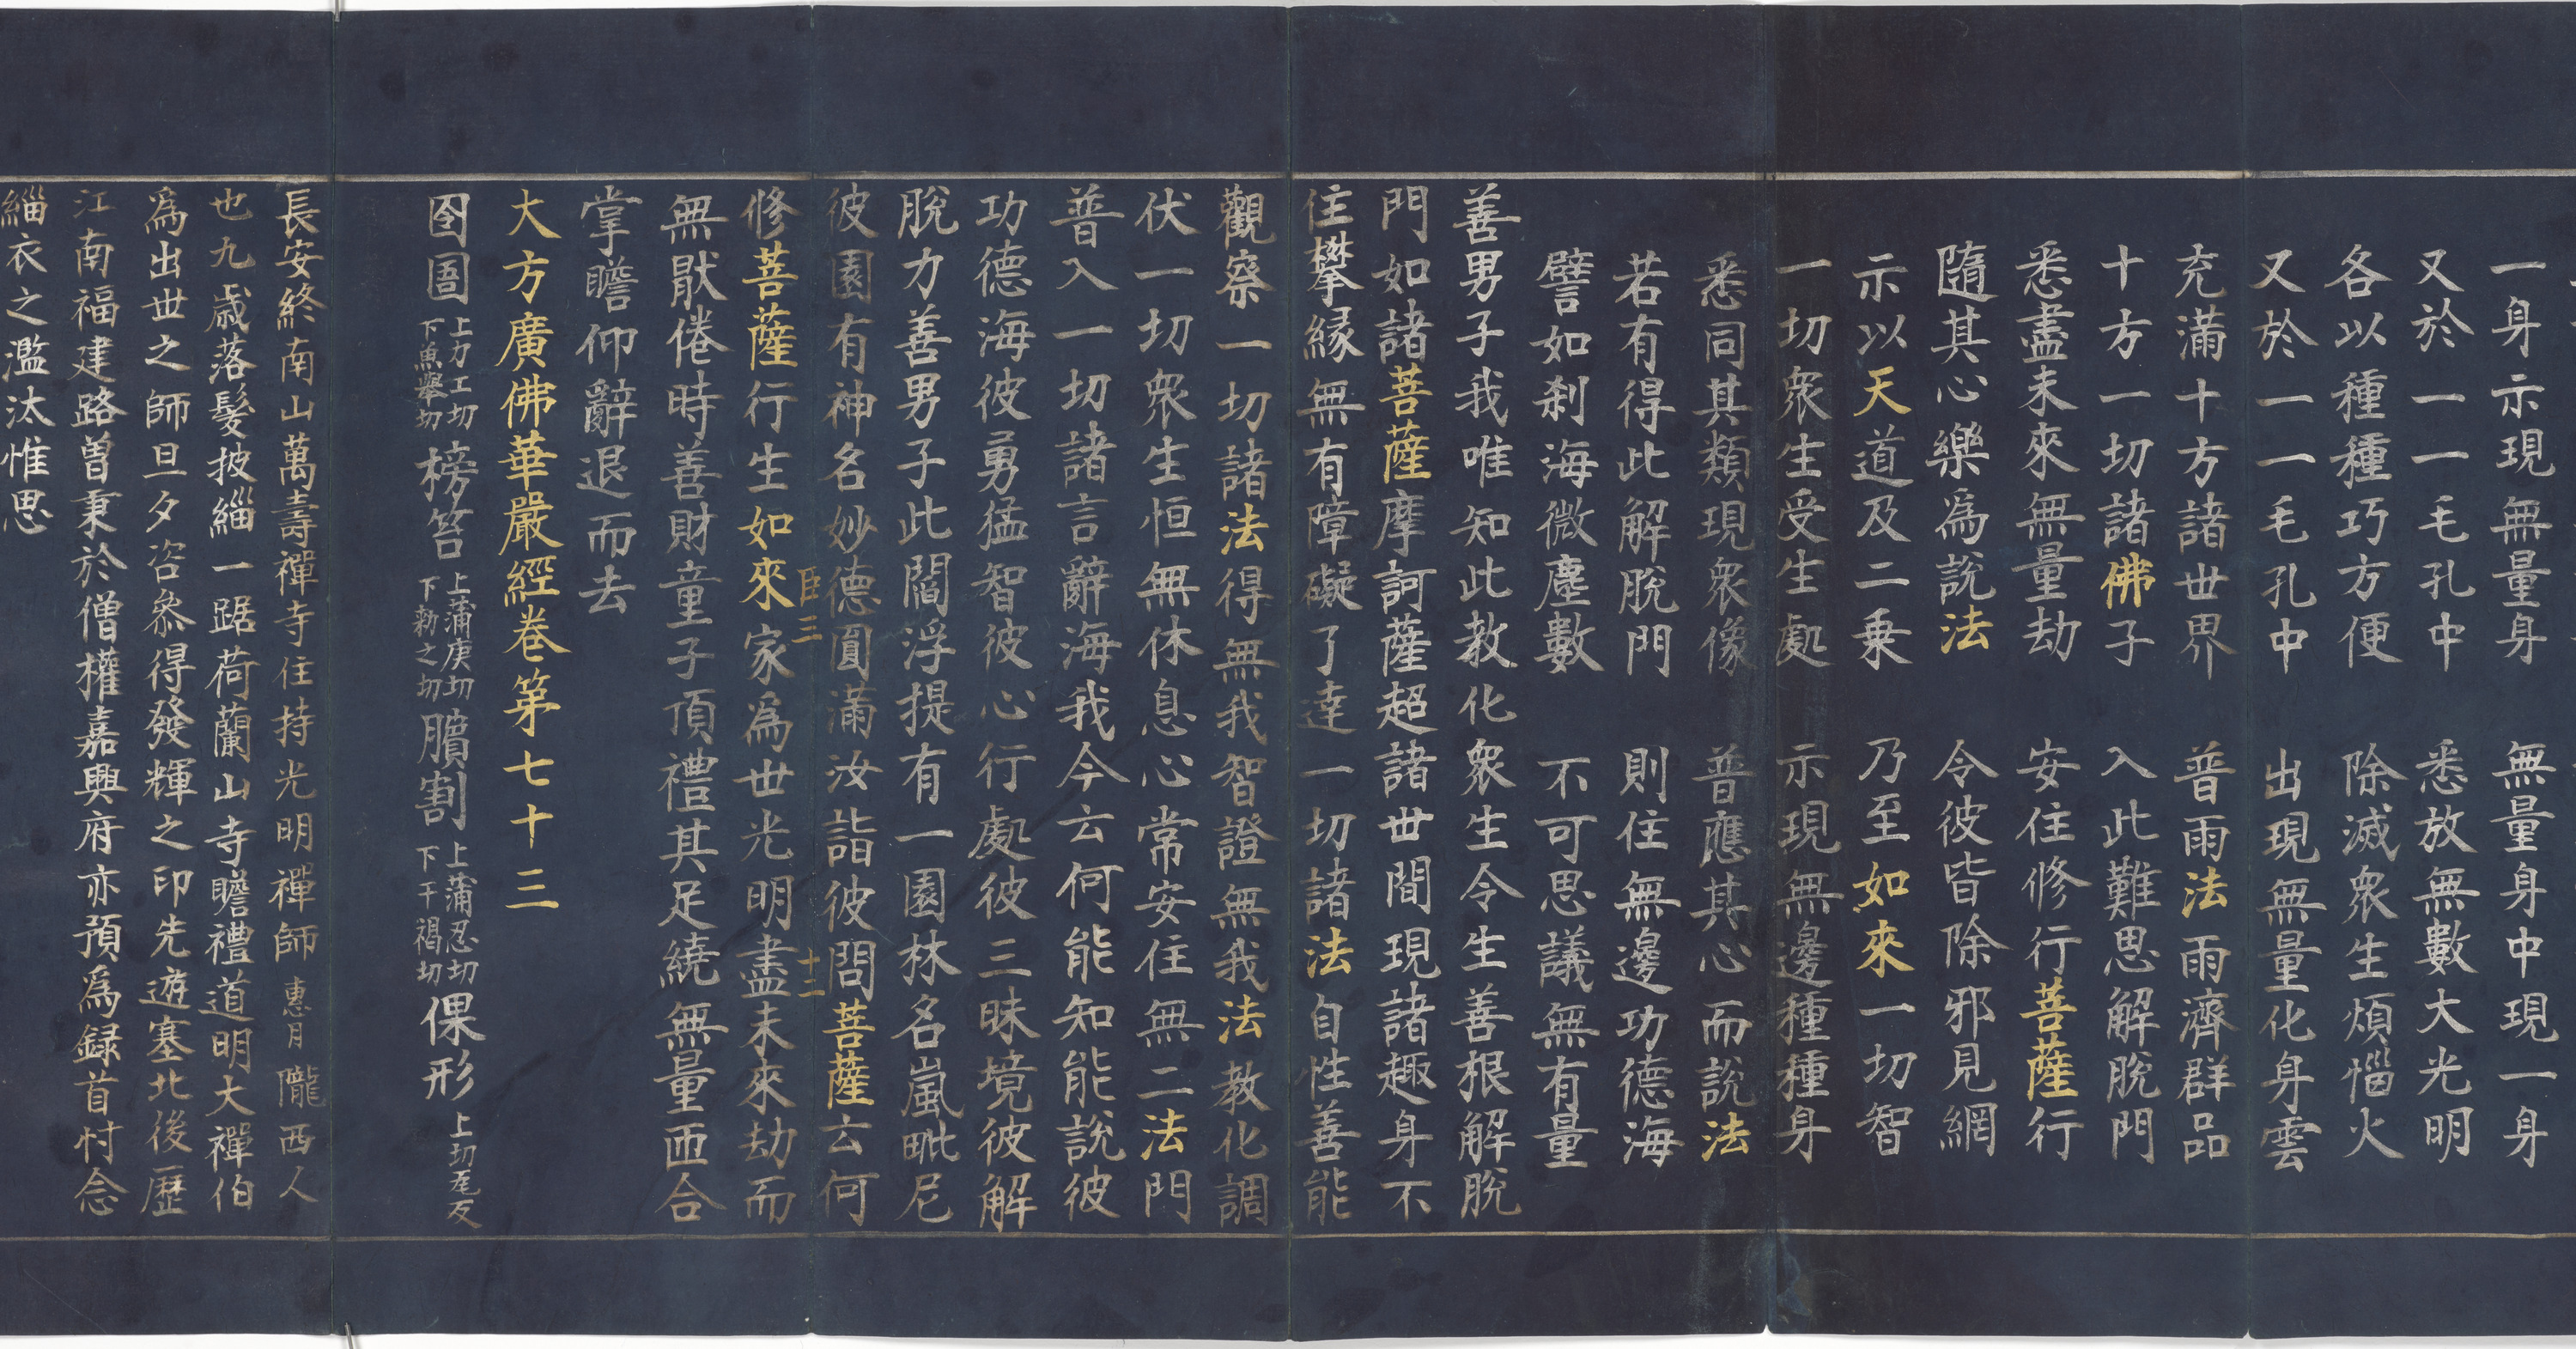 一身示現無量身　無量身中現一身
又於一一毛孔中　悉放無數大光明
各以種種巧方便　除滅衆生煩惱火
又於一一毛孔中　出現無量化身雲
充滿十方諸世界　普雨法雨濟群品
十方一切諸佛子　入此難思解脫門
悉盡未來無量劫　安住修行菩薩行
隨其心樂爲說法　令彼皆除邪見網
示以天道及二乗　乃至如來一切智
一切衆生受生處　示現無邊種種身
悉同其類現衆像　普應其心而說法
若有得此解脫門　則住無邊功德海
譬如刹海微塵數　不可思議無有量
善男子我唯知此教化衆生令生善根解脫
門如諸菩薩摩訶薩超諸世間現諸趣身不
住攀縁無有障礙了達一切諸法自性善能
觀察一切諸法得無我智證無我法教化調
伏一切衆生恒無休息心常安住無二法門
普入一切諸言辭海我今云何能知能說彼
功德海彼勇猛智彼心行處彼三昧境彼解
脫力善男子此閻浮提有一園林名嵐毗尼
彼園有神名妙德圓滿汝詣彼問菩薩云何
臣三　十二
修菩薩行生如來家爲世光明盡未來劫而
無猒倦時善財童子頂禮其足繞無量匝合
掌瞻仰辭退而去
大方廣佛華嚴經卷第七十三
囹圄上力丁切下魚舉切榜笞上蒲庚切下勑之切臏割上蒲忍切下干褐切倮形上切尾反
長安終南山萬壽禪寺住持光明禪師惠月隴西人
也九歳落髮披緇一踞荷蘭山寺瞻禮道明大禪伯
爲出世之師旦夕咨叅得發輝之印先遊塞北後歷
江南福建路曾秉於僧權嘉興府亦預爲録首忖念
緇衣之濫汰惟思